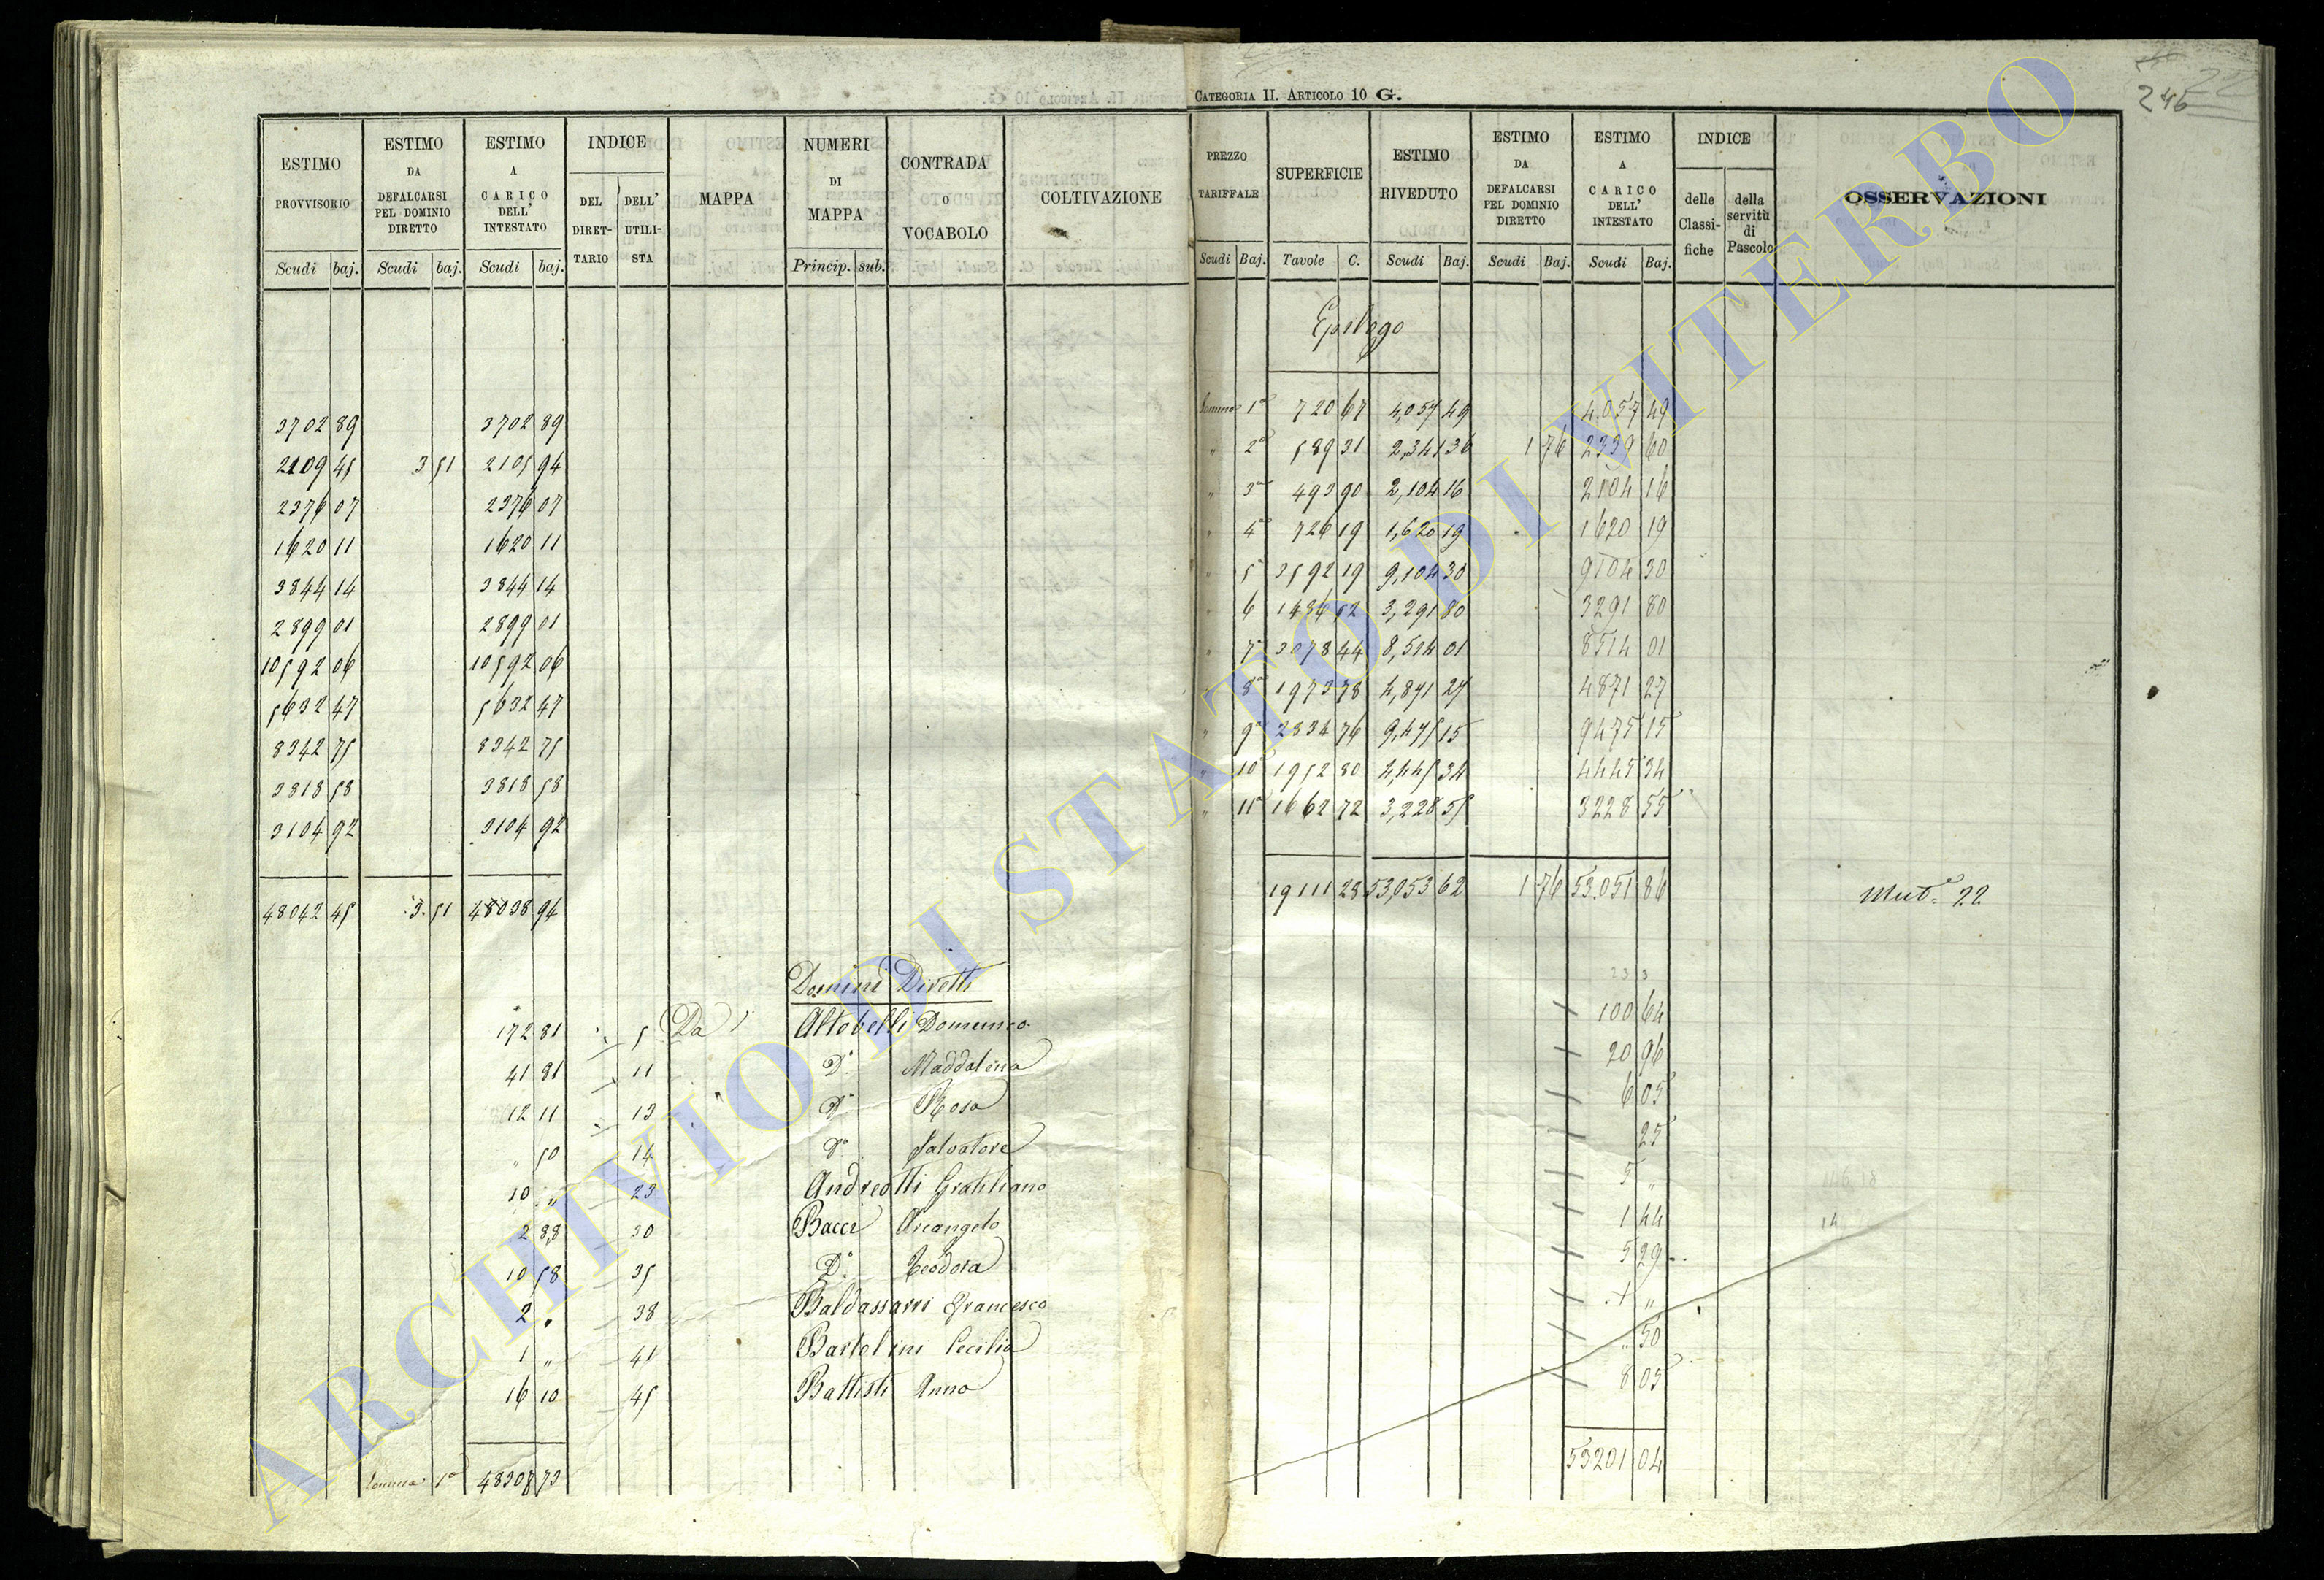 CATEGORIA II. ARTICOLO 10 G.
246
ESTIMO PROVVISORIO
ESTIMO DA DEFALCARSI PEL DOMINIO DIRETTO
ESTIMO A CARICO DELL' INTESTATO
INDICE
DEL DIRET-TARIO
DELL' UTILI-STA
MAPPA
NUMERI DI MAPPA
CONTRADA O VOCABOLO
COLTIVAZIONE
PREZZO TARIFFALE
SUPERFICIE
ESTIMO RIVEDUTO
ESTIMO DA DEFALCARSI PEL DOMINIO DIRETTO
ESTIMO A CARICO DELL' INTESTATO
INDICE
delle Classi-fiche
della servitù di Pascolo
OSSERVAZIONI
Scudi baj. Scudi baj. Scudi baj. Princip. sub.
Scudi Baj. Tavole C. Scudi Baj. Scudi Baj. Scudi Baj.
Epilogo
3702 89 3702 89 Somma 1ª 720 67 4,057 49 4.057 49
2109 45 3 51 2105 94 " 2ª 589 31 2,341 36 1 76 2339 60
2376 07 2376 07 " 3ª 493 90 2,104 16 2104 16
1620 11 1620 11 " 4ª 726 19 1,620 19 1620 19
3844 14 3844 14 " 5ª 3592 19 9,104 30 9104 30
2899 01 2899 01 " 6 1434 52 3,291 80 3291 80
10592 06 10592 06 " 7ª 3078 44 8,514 01 8514 01
5632 47 5632 47 " 8ª 1973 78 4,871 27 4871 27
8342 75 8342 75 " 9ª 2334 76 9,475 15 9475 15
3818 58 3818 58 " 10ª 1952 80 4,445 34 4445 34
3104 92 3104 92 " 11ª 1662 72 3,228 55 3228 55
48042 45 3. 51 48038 94 19111 28 53,053 62 1 76 53.051 86 Mutª 22
Domini Diretti
172 81 5 Da Altobelli Domenico 100 64
41 81 11 Dª Maddalena 20 96
12 11 13 " Dª Rosa 6 05
" 50 14 Dº Salvatore 25
10 " 23 Andreotti Gratiliano 5 "
2 88 30 Bacci Arcangelo 1 44
10 58 35 Dª Teodora 5 29
2 " 38 Baldassarri Francesco 1 "
1 " 41 Bartolini Cecilia " 50
16 10 45 Battisti Anna 8 05
Somma 1ª 48307 73 53201 04
ARCHIVIO DI STATO DI VITERBO